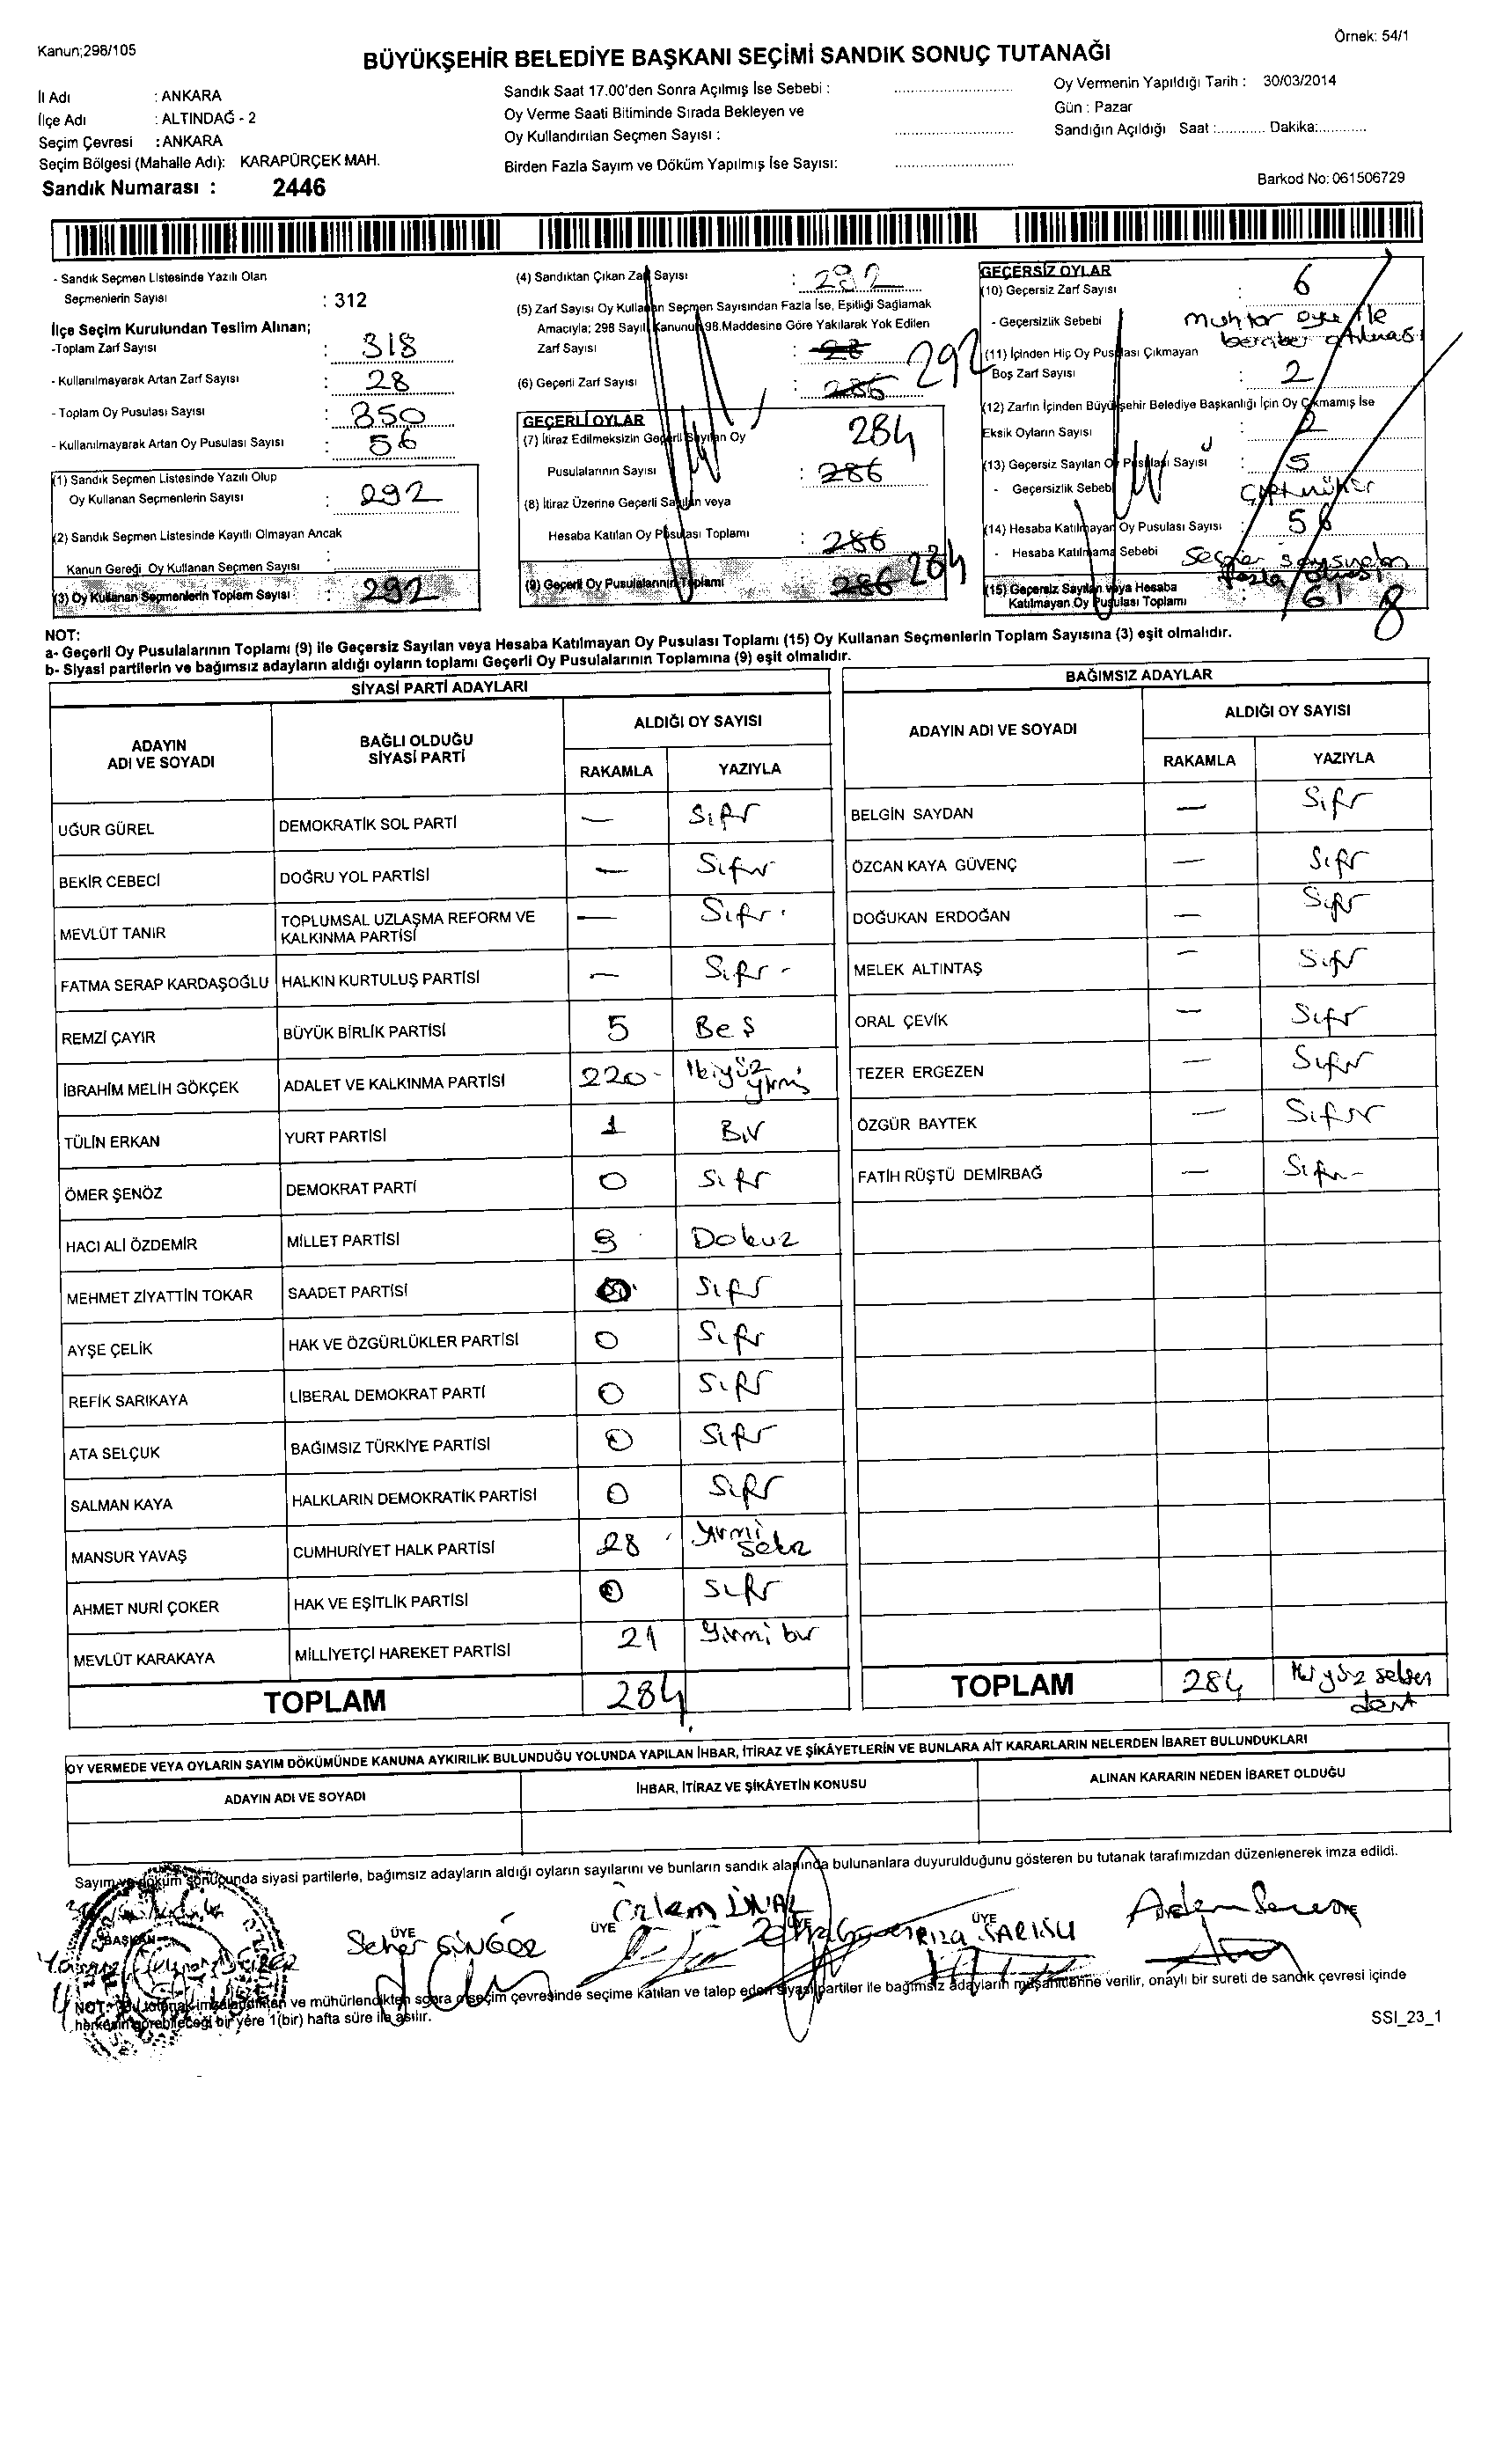 Kanun;298/105
Örnek: 54/1
BÜYÜKŞEHİR BELEDİYE BAŞKANI SEÇİMİ SANDIK SONUÇ TUTANAĞI
İl Adı : ANKARA
İlçe Adı : ALTINDAĞ - 2
Seçim Çevresi : ANKARA
Seçim Bölgesi (Mahalle Adı): KARAPÜRÇEK MAH.
Sandık Numarası : 2446
Sandık Saat 17.00'den Sonra Açılmış İse Sebebi :
Oy Verme Saati Bitiminde Sırada Bekleyen ve
Oy Kullandırılan Seçmen Sayısı :
Birden Fazla Sayım ve Döküm Yapılmış İse Sayısı:
Oy Vermenin Yapıldığı Tarih : 30/03/2014
Gün : Pazar
Sandığın Açıldığı Saat :............ Dakika:............
Barkod No: 061506729
- Sandık Seçmen Listesinde Yazılı Olan
Seçmenlerin Sayısı : 312
İlçe Seçim Kurulundan Teslim Alınan;
-Toplam Zarf Sayısı : 318
- Kullanılmayarak Artan Zarf Sayısı : 28
- Toplam Oy Pusulası Sayısı : 350
- Kullanılmayarak Artan Oy Pusulası Sayısı : 56
(1) Sandık Seçmen Listesinde Yazılı Olup
Oy Kullanan Seçmenlerin Sayısı : 292
(2) Sandık Seçmen Listesinde Kayıtlı Olmayan Ancak
Kanun Gereği Oy Kullanan Seçmen Sayısı :
(3) Oy Kullanan Seçmenlerin Toplam Sayısı : 292
(4) Sandıktan Çıkan Zarf Sayısı : 292
(5) Zarf Sayısı Oy Kullanan Seçmen Sayısından Fazla İse, Eşitliği Sağlamak
Amacıyla; 298 Sayılı Kanunun 98.Maddesine Göre Yakılarak Yok Edilen
Zarf Sayısı : 28
(6) Geçerli Zarf Sayısı : 286 292
GEÇERLİ OYLAR
(7) İtiraz Edilmeksizin Geçerli Sayılan Oy 284
Pusulalarının Sayısı : 286
(8) İtiraz Üzerine Geçerli Sayılan veya
Hesaba Katılan Oy Pusulası Toplamı : 286
(9) Geçerli Oy Pusulalarının Toplamı 286 284
GEÇERSİZ OYLAR
(10) Geçersiz Zarf Sayısı : 6
- Geçersizlik Sebebi muhtar oyu ile
beraber atılması
(11) İçinden Hiç Oy Pusulası Çıkmayan
Boş Zarf Sayısı : 2
(12) Zarfın İçinden Büyükşehir Belediye Başkanlığı İçin Oy Çıkmamış İse
Eksik Oyların Sayısı : 2
(13) Geçersiz Sayılan Oy Pusulası Sayısı : 5
- Geçersizlik Sebebi
(14) Hesaba Katılmayan Oy Pusulası Sayısı : 56
- Hesaba Katılmama Sebebi Seçmen sayısından
fazla olması
(15) Geçersiz Sayılan veya Hesaba
Katılmayan Oy Pusulası Toplamı : 61 8
NOT:
a- Geçerli Oy Pusulalarının Toplamı (9) ile Geçersiz Sayılan veya Hesaba Katılmayan Oy Pusulası Toplamı (15) Oy Kullanan Seçmenlerin Toplam Sayısına (3) eşit olmalıdır.
b- Siyasi partilerin ve bağımsız adayların aldığı oyların toplamı Geçerli Oy Pusulalarının Toplamına (9) eşit olmalıdır.
SİYASİ PARTİ ADAYLARI
ADAYIN ADI VE SOYADI BAĞLI OLDUĞU SİYASİ PARTİ ALDIĞI OY SAYISI
RAKAMLA YAZIYLA
UĞUR GÜREL DEMOKRATİK SOL PARTİ — Sıfır
BEKİR CEBECİ DOĞRU YOL PARTİSİ — Sıfır
MEVLÜT TANIR TOPLUMSAL UZLAŞMA REFORM VE KALKINMA PARTİSİ — Sıfır
FATMA SERAP KARDAŞOĞLU HALKIN KURTULUŞ PARTİSİ — Sıfır
REMZİ ÇAYIR BÜYÜK BİRLİK PARTİSİ 5 Beş
İBRAHİM MELİH GÖKÇEK ADALET VE KALKINMA PARTİSİ 220 ikiyüz yirmi
TÜLİN ERKAN YURT PARTİSİ 1 Bir
ÖMER ŞENÖZ DEMOKRAT PARTİ 0 Sıfır
HACI ALİ ÖZDEMİR MİLLET PARTİSİ 9 Dokuz
MEHMET ZİYATTİN TOKAR SAADET PARTİSİ 0 Sıfır
AYŞE ÇELİK HAK VE ÖZGÜRLÜKLER PARTİSİ 0 Sıfır
REFİK SARIKAYA LİBERAL DEMOKRAT PARTİ 0 Sıfır
ATA SELÇUK BAĞIMSIZ TÜRKİYE PARTİSİ 0 Sıfır
SALMAN KAYA HALKLARIN DEMOKRATİK PARTİSİ 0 Sıfır
MANSUR YAVAŞ CUMHURİYET HALK PARTİSİ 28 Yirmi sekiz
AHMET NURİ ÇOKER HAK VE EŞİTLİK PARTİSİ 0 Sıfır
MEVLÜT KARAKAYA MİLLİYETÇİ HAREKET PARTİSİ 21 Yirmi bir
TOPLAM 284
BAĞIMSIZ ADAYLAR
ADAYIN ADI VE SOYADI ALDIĞI OY SAYISI
RAKAMLA YAZIYLA
BELGİN SAYDAN — Sıfır
ÖZCAN KAYA GÜVENÇ — Sıfır
DOĞUKAN ERDOĞAN — Sıfır
MELEK ALTINTAŞ — Sıfır
ORAL ÇEVİK — Sıfır
TEZER ERGEZEN — Sıfır
ÖZGÜR BAYTEK — Sıfır
FATİH RÜŞTÜ DEMİRBAĞ — Sıfır
TOPLAM 284 ikiyüz seksen dört
OY VERMEDE VEYA OYLARIN SAYIM DÖKÜMÜNDE KANUNA AYKIRILIK BULUNDUĞU YOLUNDA YAPILAN İHBAR, İTİRAZ VE ŞİKÂYETLERİN VE BUNLARA AİT KARARLARIN NELERDEN İBARET BULUNDUKLARI
ADAYIN ADI VE SOYADI İHBAR, İTİRAZ VE ŞİKÂYETİN KONUSU ALINAN KARARIN NEDEN İBARET OLDUĞU
Sayım ve döküm sonucunda siyasi partilerle, bağımsız adayların aldığı oyların sayılarını ve bunların sandık alanında bulunanlara duyurulduğunu gösteren bu tutanak tarafımızdan düzenlenerek imza edildi.
BAŞKAN ÜYE ÜYE ÜYE ÜYE
Seher GÜNGÖR
Özlem İNAL
Rıza SARISU
NOT: Bu tutanak imzalandıktan ve mühürlendikten sonra o seçim çevresinde seçime katılan ve talep eden siyasi partiler ile bağımsız adayların müşahitlerine verilir, onaylı bir sureti de sandık çevresi içinde
herkesin görebileceği bir yere 1(bir) hafta süre ile asılır.
SSI_23_1